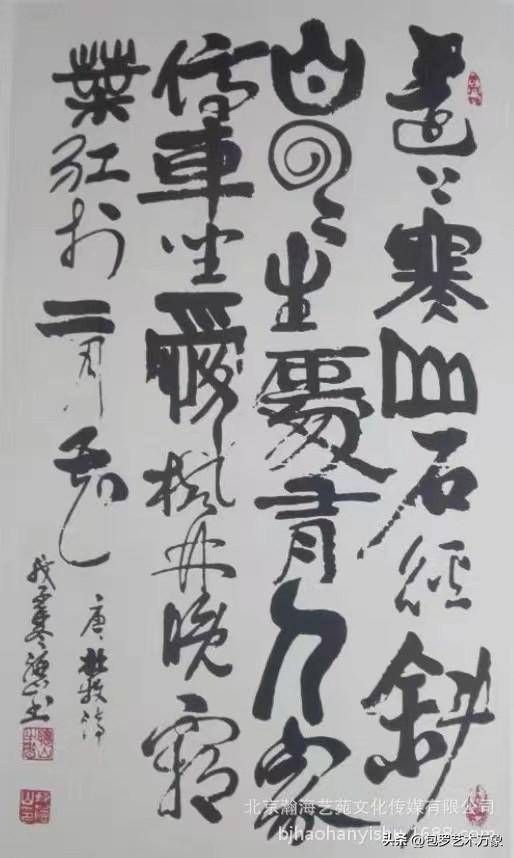 遠上寒山石徑斜
白云生處有人家
停車坐愛楓林晚霜
葉紅於二月花
唐杜牧詩
北京瀚海艺苑文化传媒有限公司
bjhaohanyishu.1688.com
头条 @包罗艺术万象